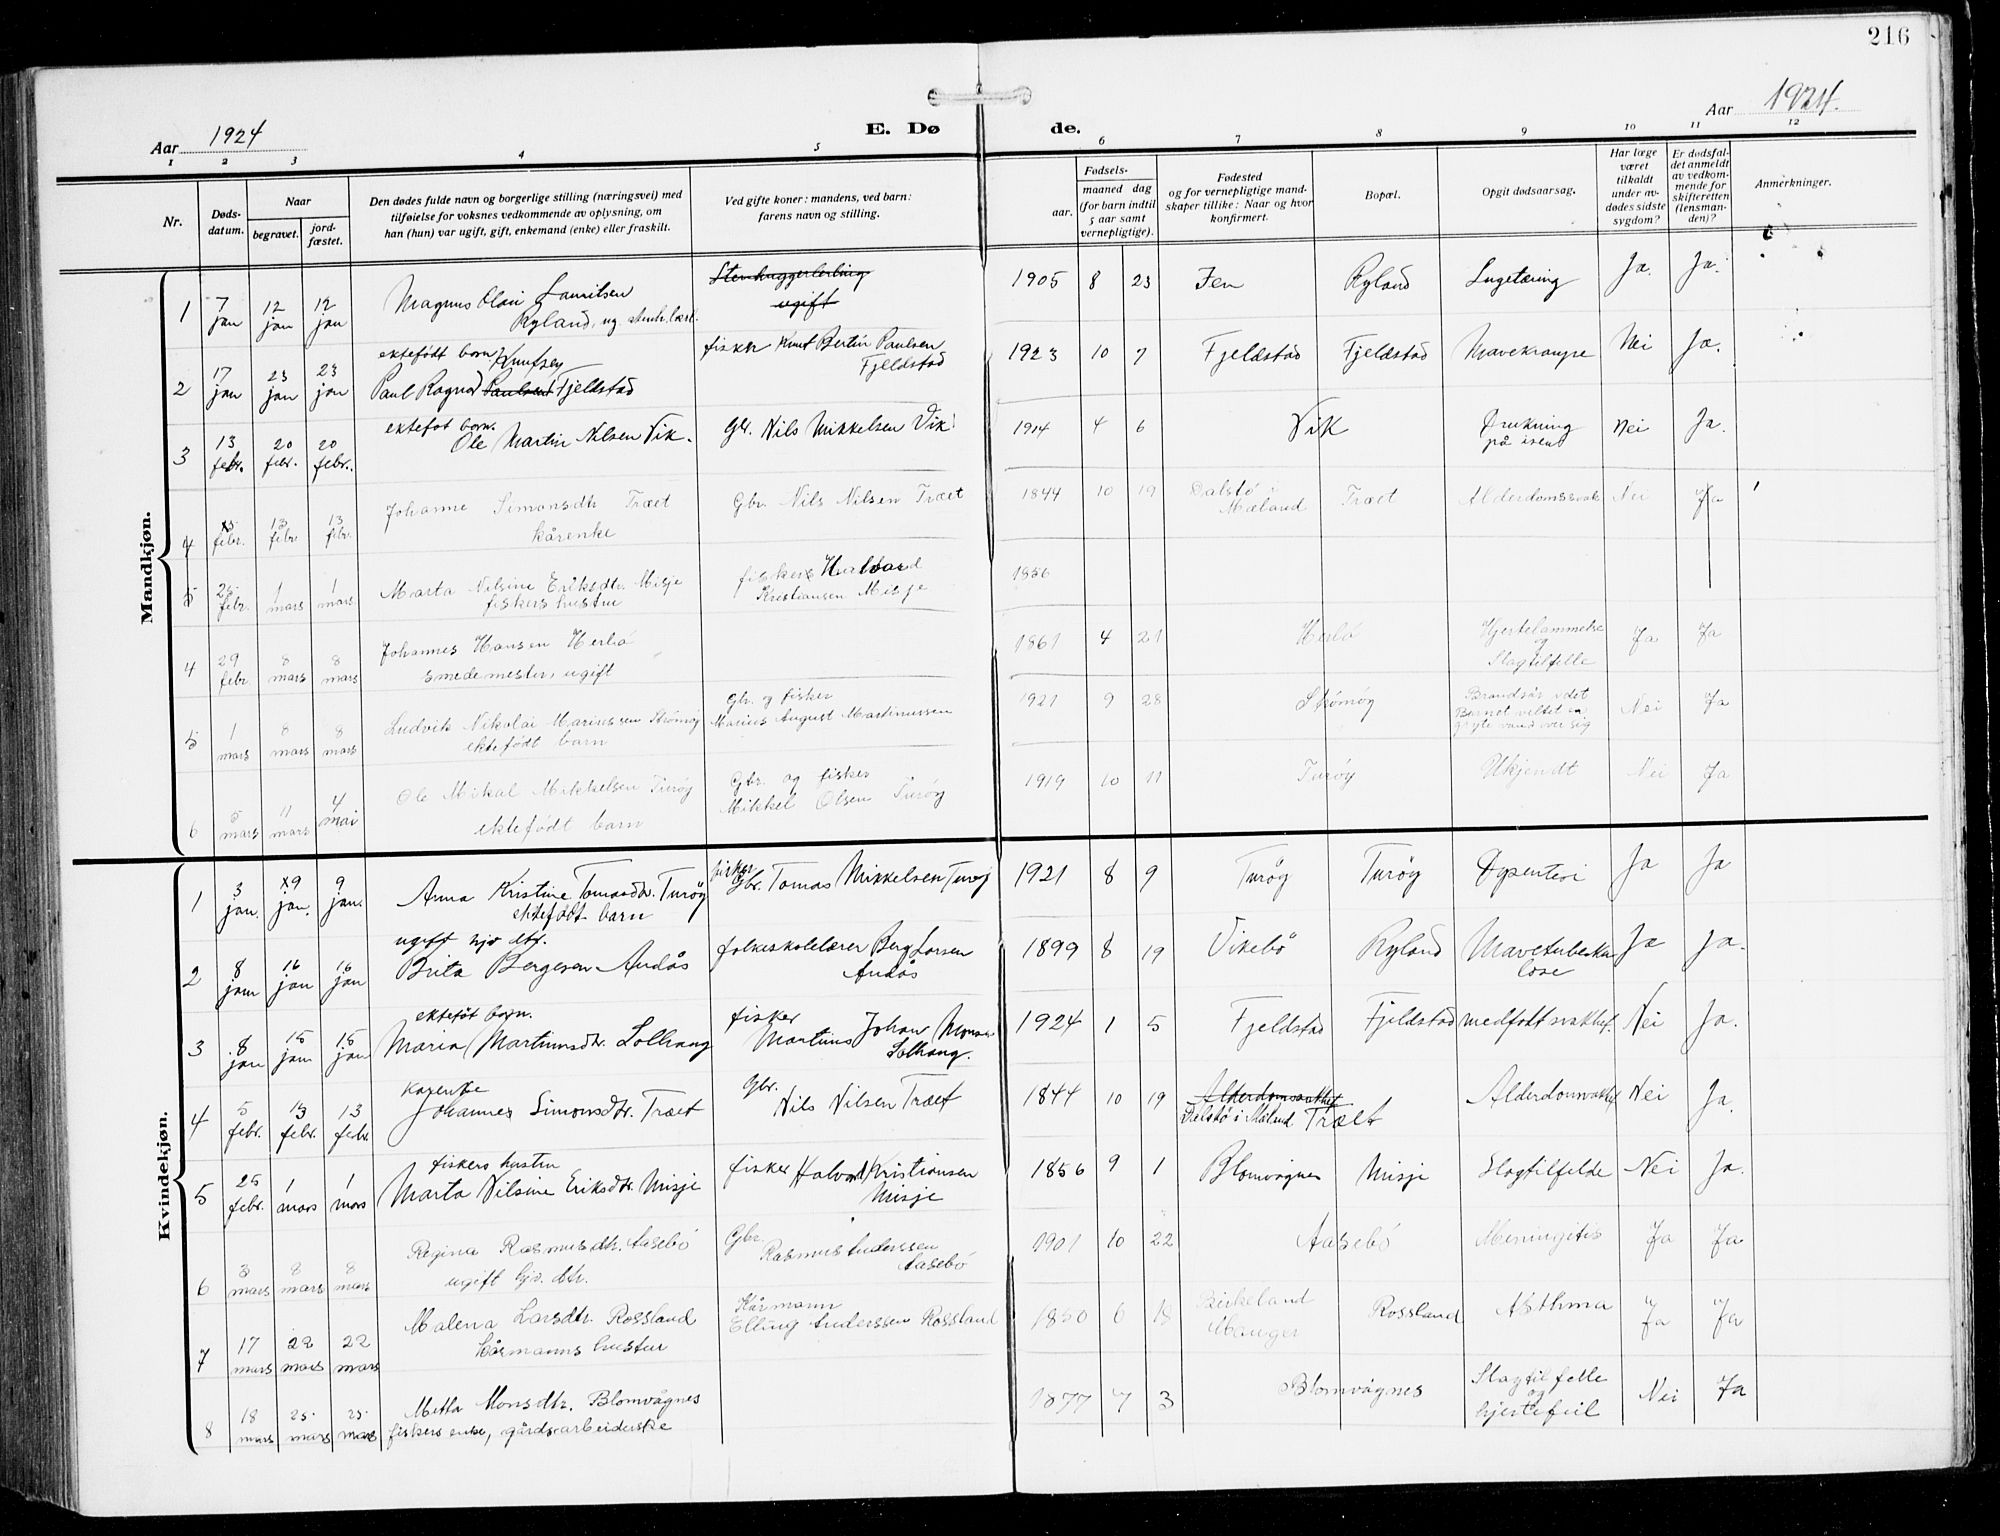 216
Aar 1924
E. Dø
de.
Aar 1924.
1 2 3 4 5 6 7 8 9 10 11 12
Nr.
Døds-
datum.
Naar
begravet.
jord-
fæstet.
Den dødes fulde navn og borgerlige stilling (næringsvei) med
tilføielse for voksnes vedkommende av oplysning, om
han (hun) var ugift, gift, enkemand (enke) eller fraskilt.
Ved gifte koner: mandens, ved barn:
farens navn og stilling.
Fødsels-
aar.
maaned dag
(for barn indtil
5 aar samt
vernepligtige).
Fødested
og for vernepligtige mand-
skaper tillike: Naar og hvor
konfirmert.
Bopæl.
Opgit dødsaarsag.
Har læge
været
tilkaldt
under av-
dødes sidste
sygdom?
Er dødsfal-
det anmeldt
av vedkom-
mende for
skifteretten
(lensman-
den)?
Anmerkninger.
Mandkjøn.
1 7 jan 12 jan 12 jan
Magnus Olai Lauritsen
Ryland, ug.
ugift
1905 8 23 Jen Ryland Lugetæring Ja. Ja.
2 17 jan 23 jan 23 jan
ektefødt barn Knutsen
Paul Ragnar Paulsen Fjeldstad
fisker Knut Bertin Paulsen
Fjeldstad
1923 10 7 Fjeldstad Fjeldstad Mavekrampe Nei Ja.
3 13 febr. 20 febr. 20 febr.
ekteføt barn.
Ole Martin Nilsen Vik.
Gbr. Nils Mikkelsen Vik
1914 4 6 Vik Drukning
på isen Nei Ja.
4 5 febr. 13 febr 13 febr.
Johanne Simonsdtr Træet
kårenke
Gbr. Nils Nilsen Træet
1844 10 19 Dalstø i
Mæland Træet Alderdomssvak Nei Ja
5 25 febr. 1 mars 1 mars
Marta Nilsine Eriksdtr. Misje
fiskers hustru
fiskers Halvard
Kristiansen Misje
1856
4 29 febr 8 mars 8 mars
Johannes Hansen Herlø
smedemester, ugift
1861 4 21 Herlø Hjertelammelse
og
Slagtilfelle Ja Ja
5 1 mars 8 mars 8 mars
Ludvik Nikolai Mariussen Strømøy
ektefødt barn
Gbr. og fisker
Marius August Martinussen
1921 9 28 Strømøy Brandsår, idet
Barnet veltet en
gryte vand over sig Nei Ja
6 5 mars 11 mars 4 mai
Ole Mikal Mikkelsen Turøy
ektefødt barn
Gbr. og fisker
Mikkel Olsen Turøy
1919 10 11 Turøy Ukjendt Nei Ja
Kvindekjøn.
1 3 jan. 9 jan. 9 jan.
Anna Kristine Tomasdtr. Turøy
ektefødt barn
fisker
Gbr. Tomas Mikkelsen Turøy
1921 8 9 Turøy Turøy Dysenteri Ja Ja
2 8 jan 16 jan 16 jan
ugift hjv dtr.
Brita Bergesen Andås
folkeskolelærer Berg Larsen
Andås
1899 8 19 Vikebø Ryland Mavetuberku
lose Ja Ja.
3 8 jan 15 jan 15 jan
ekteføt barn.
Maria Martinusdtr. Solhaug
fisker
Martinus Johan Monsen
Solhaug.
1924 1 5 Fjeldstad Fjeldstad medfødt svakhet. Nei Ja.
4 5 febr. 13 febr. 13 febr
karenke
Johannes Simonsdtr. Træet
Gbr.
Nils Nilsen Træet
1844 10 19 Alderdomsvakhet
Dalstø i Mæland Træet Alderdomsvakhet Nei Ja.
5 25 febr. 1 mars 1 mars
fiskers hustru
Marta Nilsine Eriksdtr. Misje
fisker Halvard Kristiansen
Misje
1856 9 1 Blomvågnes Misje Slagtilfelde Nei Ja.
6 3 mars 8 mars 8 mars
Regina Rasmusdtr. Aasebø
ugift hjv. dtr.
Gbr.
Rasmus Anderssen
Aasebø
1901 10 22 Aasebø Meningitis Ja Ja
7 17 mars 22 mars 22 mars
Malena Larsdtr. Rossland
kårmanns hustru
Kårmann
Elling Anderssen Rossland
1850 6 18 Birkeland
Manger Rossland Asthma Ja Ja
8 18 mars 25 mars 25 mars
Metta Monsdtr. Blomvågnes
fiskers enke, gårdsarbeiderske
1877 7 3 Blomvågnes Slagtilfelle
og
hjertefeil Nei Ja